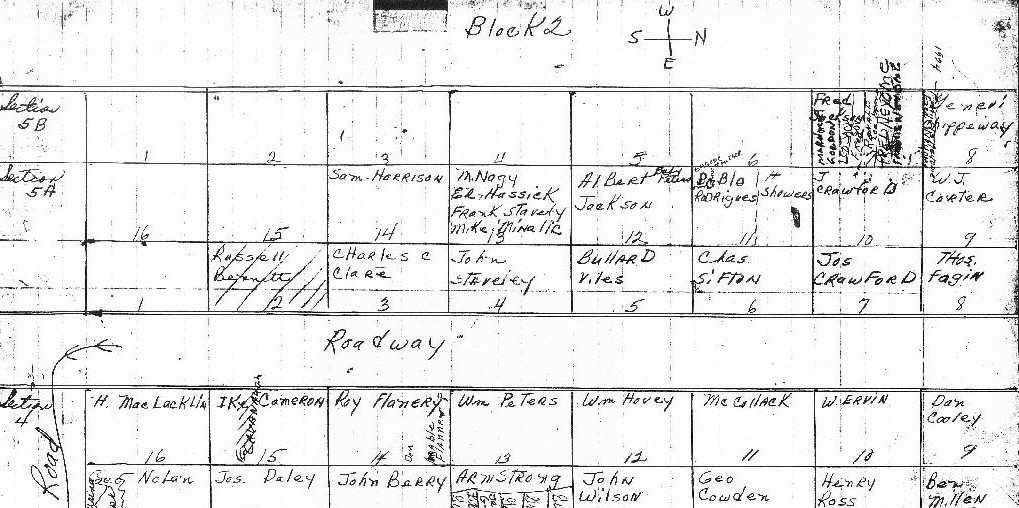 Block 2
W
S N
E
Section
5B
1
2
3
4
5
6
Fred
Jackson
8
Section
5A
16
15
Sam Harrison
14
M. Nagy
Ed. Hassick
Frank Stavely
Mike Minalic
13
Albert
Jackson
Peters
12
Pablo
Rodrigues
H
Showers
11
J
Crawford
10
W.J.
Carter
9
1
Russell
Bennett
2
Charles C
Clare
3
John
Staveley
4
Bullard
Viles
5
Chas.
Sifton
6
Jos
Crawford
7
Thos.
Fagin
8
Roadway
Road
Section
4
H. MacLacklin
16
Ike Cameron
15
Roy Flanery
14
Mable
Flannery
Wm Peters
13
Wm Hovey
12
McCollack
11
W. Ervin
10
Dan
Cooley
9
Nolan
Jos. Daley
John Berry
Armstrong
John
Wilson
Geo
Cowden
Henry
Ross
Ben
Millen